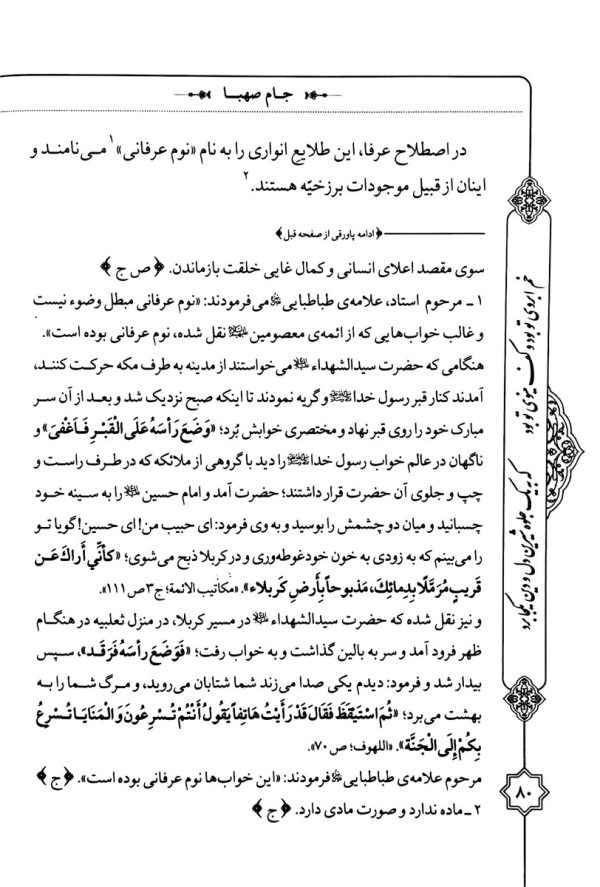 جام صهبا
در اصطلاح عرفا، این طلایعِ انواری را به نام «نوم عرفانی»۱ می‌نامند و
اینان از قبیل موجودات برزخیّه هستند.۲
﴿ادامه پاورقی از صفحه قبل﴾
سوی مقصد اعلای انسانی و کمال غایی خلقت بازماندن. ﴿ص ج﴾
۱ـ مرحوم استاد، علامه‌ی طباطبایی می‌فرمودند: «نوم عرفانی مبطل وضوء نیست
و غالب خواب‌هایی که از ائمه‌ی معصومین نقل شده، نوم عرفانی بوده است».
هنگامی که حضرت سیدالشهداء می‌خواستند از مدینه به طرف مکه حرکت کنند،
آمدند کنار قبر رسول خدا و گریه نمودند تا اینکه صبح نزدیک شد و بعد از آن سر
مبارک خود را روی قبر نهاد و مختصری خوابش بُرد؛ «وَضَعَ رَأسَهُ عَلَی الْقَبْرِ فَأَغْفَیٰ» و
ناگهان در عالم خواب رسول خدا را دید با گروهی از ملائکه که در طرف راست و
چپ و جلوی آن حضرت قرار داشتند؛ حضرت آمد و امام حسین را به سینه خود
چسبانید و میان دو چشمش را بوسید و به وی فرمود: ای حبیب من! ای حسین! گویا تو
را می‌بینم که به زودی به خون خود غوطه‌وری و در کربلا ذبح می‌شوی؛ «کَأَنِّي أَراكَ عَن
قَریبٍ مُرَمَّلًا بِدِمائِكَ، مَذبوحاً بِأَرضِ کَربَلاء». «مکاتیب الائمة؛ ج۳ ص۱۱۱».
و نیز نقل شده که حضرت سیدالشهداء در مسیر کربلا، در منزل ثعلبیه در هنگام
ظهر فرود آمد و سر به بالین گذاشت و به خواب رفت؛ «فَوَضَعَ رأسَهُ فَرَقَد»، سپس
بیدار شد و فرمود: دیدم یکی صدا می‌زند شما شتابان می‌روید، و مرگ شما را به
بهشت می‌برد؛ «ثُمَّ اسْتَیْقَظَ فَقالَ قَدْ رَأَیْتُ هَاتِفاً یَقُولُ أَنْتُمْ تُسْرِعُونَ وَ الْمَنَایَا تُسْرِعُ
بِکُمْ إِلَی الْجَنَّة». «اللهوف؛ ص۷۰».
مرحوم علامه‌ی طباطبایی فرمودند: «این خواب‌ها نوم عرفانی بوده است». ﴿ج﴾
۲ـ ماده ندارد و صورت مادی دارد. ﴿ج﴾
خم ابروی تو بود و کف مینوی تو بود
که به یک جلوه شیرین دل و دین یکجا برد
۸۰